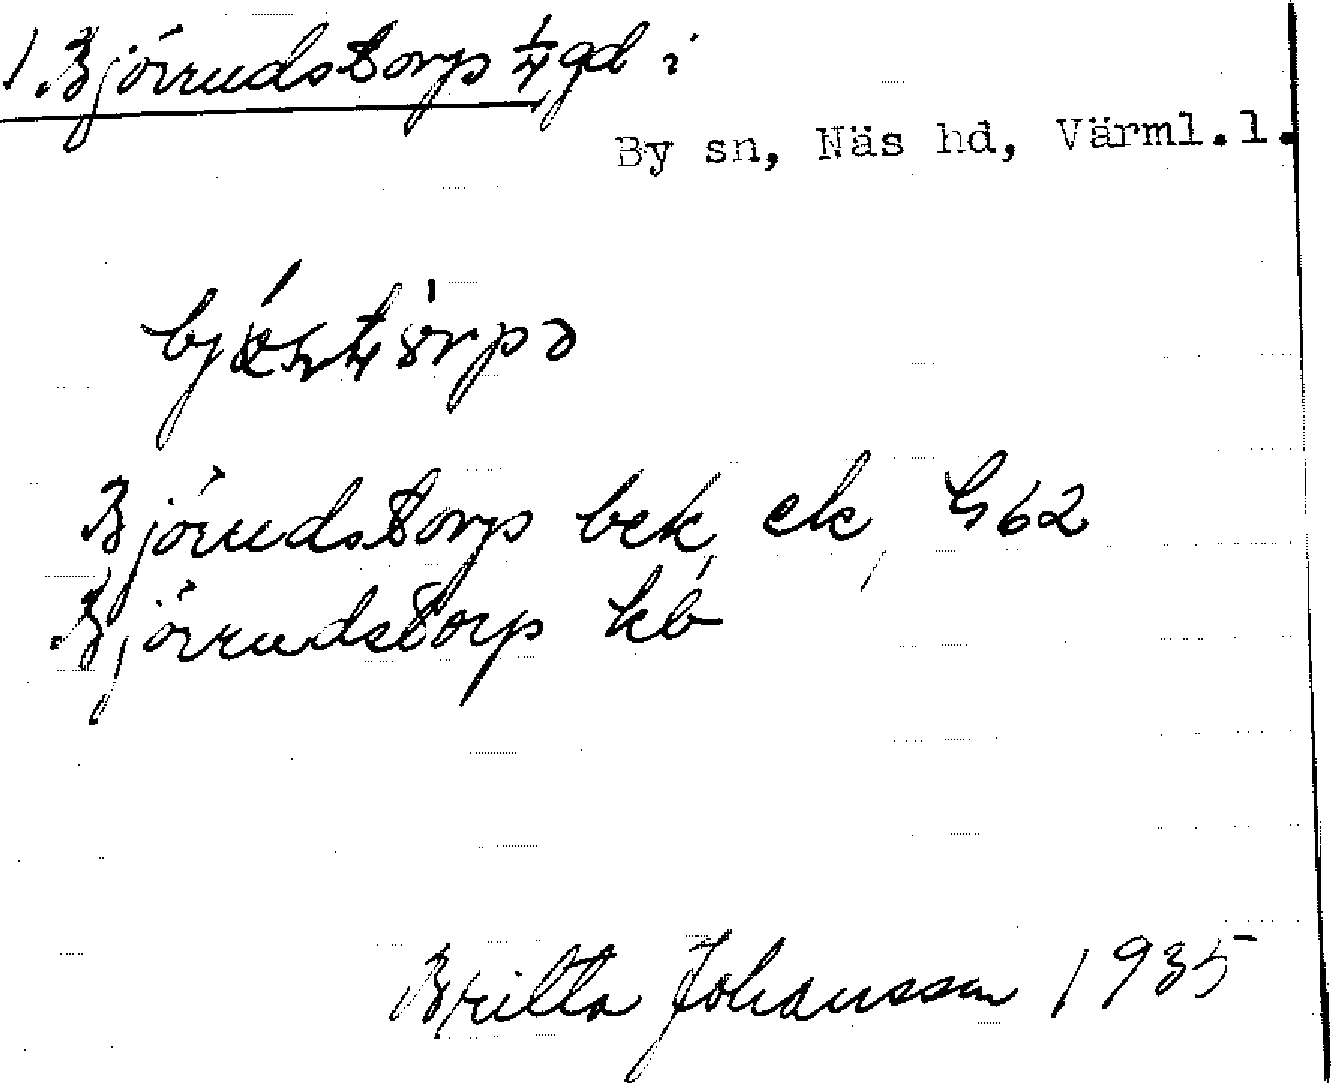 1. Björrudstorp 1/4 gd i
By sn, Näs hd, Värml.l.
Björudstorp bek ek G62
Björrudstorp kb
Britta Johansson 1935